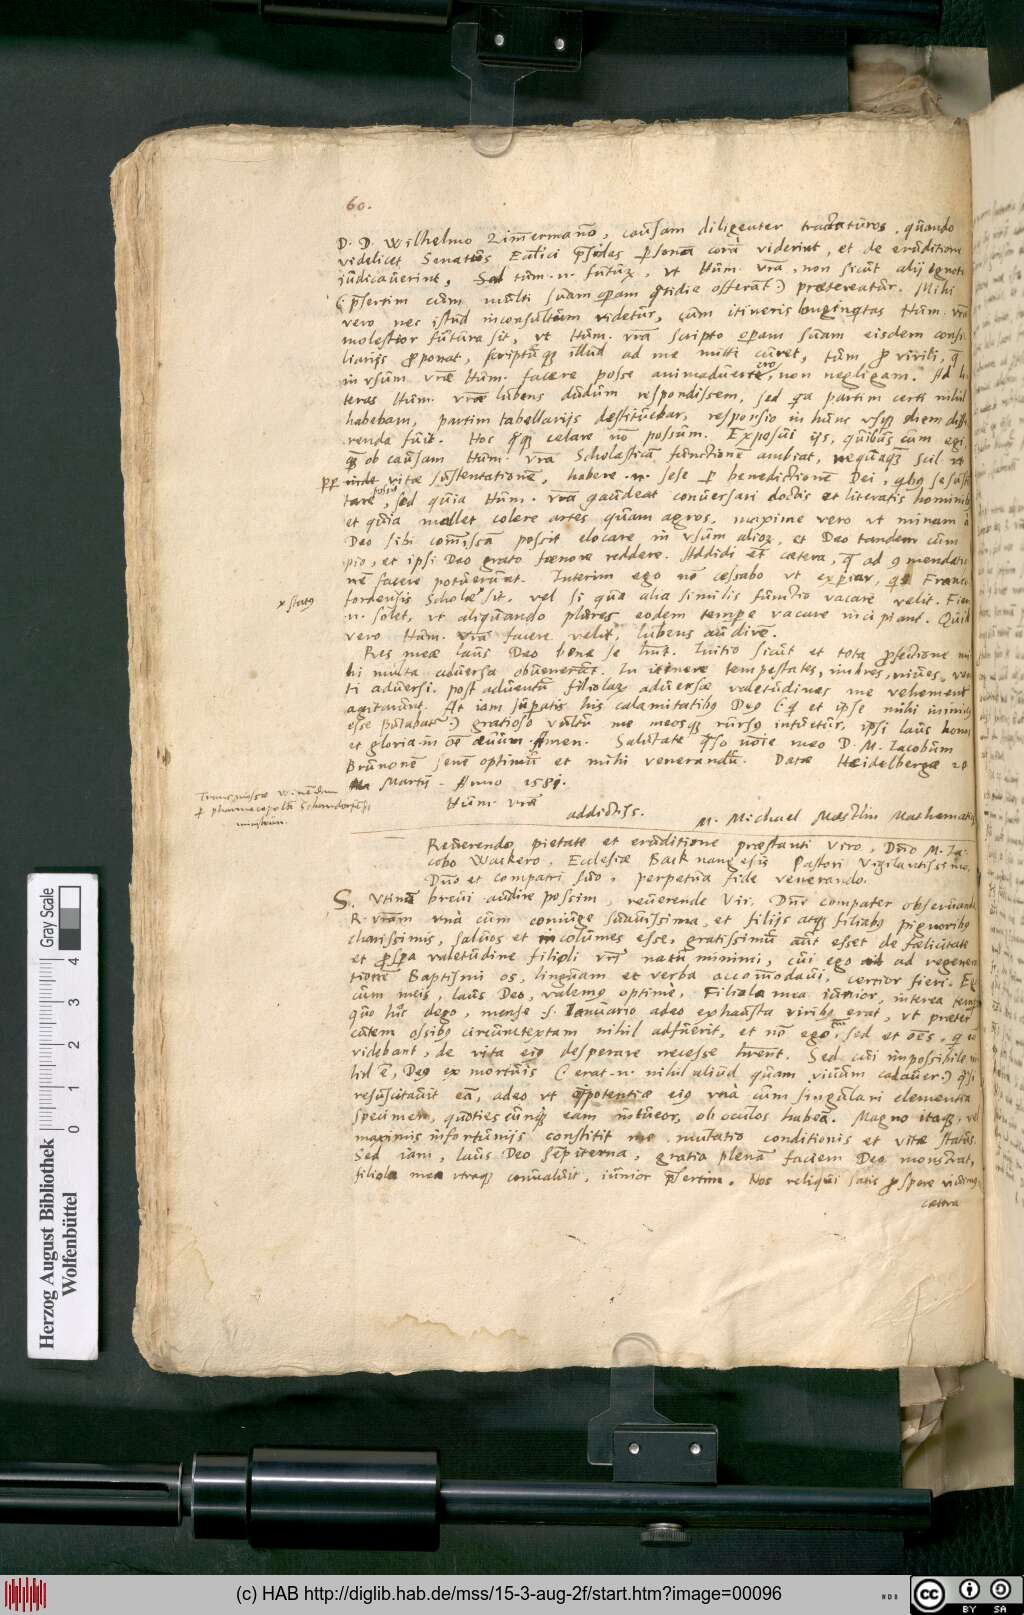 60.
D. D. Wilhelmo Zim̃ermañ̃o, caũsam diligenter tractatũros, qũando
videlicet Senatũs Eccl̃ici p̃sides coram viderint, et de erũditione
iũdicaũerint, Sed tũm .n. fũtũr, vt Hũm. vr̃a, non sicũt alij ignoti
(: p̃sertim cũm mũlti sũam operam qtidie offerãt :) prætereatũr. Mihi
vero nec istũd inconsũltũm videtũr, cũm itineris longinqtas Hũm. vr̃æ
molestior fũtũra sit, vt Hũm. vr̃a scripto operam sũam eisdem consi
liarijs proponat, scriptũq illũd ad me mitti cũret, tũm pro virili, q̃
in vsũm vr̃æ Hũm. facere posse animadũertero, non negligam. Ad li
teras Hũm. vr̃æ lũbens dũdũm respondissem, sed qa partim certi nihil
habebam, partim tabellarijs destitũebar, responsio in hũnc vsq diem diffe
renda fũit. Hos celare nõ possũm. Exposũi ijs, qũibũs cũm egi,
ob caũsam Hũm. vr̃a Scholasticã fũnctionẽ ambiat, neqũaqz scil. vt
vitæ sũstentationẽ, habere .n. sese p benedictionẽ Dei, qbg se sũsten
tare possit, sed qũia Hũm. vr̃a gaũdeat conũersari doctis et literatis hominib
et qũia mallet colere artes qũam agros, maxime vero vt minam à
Deo sibi com̃issã possit elocare in vsũm alioz, et Deo tandem cũm
ipio, et ipsi Deo grato fœnore reddere. Addidi et cætera, q̃ ad 9mendatio
nẽ facere potũerũnt. Interim ego nõ cessabo vt experiar, Franco
* statg
fordensis Scholæ sit, vel si qũa alia similis fũnctio vacare velit. Fieri
.n. solet, vt aliqũando plũres eodem tempe vacare incipiant. Qũid
vero Hũm. vr̃a facere velit, lũbens aũdirẽ.
Res meæ laũs Deo bene se hñt. Initio sicũt et tota profectione mi
hi mũlta adũersa obũenerãt. In itinere tempestates, imbres, niũes, ven
ti adũersi. post adũentũ filiolaz adũersæ valetũdines me vehementr
agitarũnt. At iam sũpatis his calamitatibg Deg (: q et ipse mihi inimicg
esse pũtabatr :) gratioso vũltũ me meosq rũrsg intũetũr, ipsi laũs honor
et gloria in oẽ æũũm. Amen. Salũtate q̃so noĩe meo D. M. Iacobũm
Brũnonẽ senẽ optimũ et mihi venerandũ. Datæ Heidelbergæ 20
Martij. Anno 1581.
Transmissæ Winẽdam
p pharmacopolã Schorndorfensẽ
Hũm. vr̃æ
addictiss.
M. Michael Mæstlin Mathematicg
Reũerendo, pietate et erũditione præstanti Viro, Dño M. Ia
cobo Wackero, Ecclesiæ Backnangesis Pastori Vigilantissimo,
Dño et compatri sũo, perpetũa fide venerando.
S. Vtinã breũi aũdire possim, reũerende Vir, Dñe compater obserũande
R. vr̃am vnà cũm coniũge sũaũissima, et filijs atq filiabg pignoribg
charissimis, salũos et incolũmes esse, gratissimũ aũt esset de fœlicitate
et prospa valetũdine filioli vr̃i natũ minimi, cũi ego ad regenera
tionẽ Baptismi os, lingũam et verba accom̃odaũi, certior fieri. Ego
cũm meis, laũs Deo, valemg optimè. Filiola mea iũnior, interea temp
qũo hĩc dego, mense .s. Ianũario adeo exhaũsta viribg erat, vt præter
cũtem ossibg circũmtextam nihil adfũerit, et nõ ego, sed et oẽs, q eã
videbant, de vita eig desperare necesse hrent. Sed cũi impossibile ni
hil ẽ, Deg ex mortũis (: erat .n. nihil aliũd qũam viũũm cadaũer :) q̃si
resũscitaũit eã, adeo vt oĩpotentiæ eig vnà cũm singũlari clementia
specimen, qũoties cũnq eam intũeor, ob ocũlos habeã. Magno itaq, vel
maximis infortũnijs constitit me mũtatio conditionis et vitæ statũs.
Sed iam, laũs Deo sempiterna, gratia plenã faciem Deg monstrat,
filiola mea vtraq conũalũit, iũnior p̃sertim. Nos reliqũi satis prospere viũimg
cætera
Herzog August Bibliothek
Wolfenbüttel
Gray Scale
0 1 2 3 4
(c) HAB http://diglib.hab.de/mss/15-3-aug-2f/start.htm?image=00096
WDB
cc BY SA